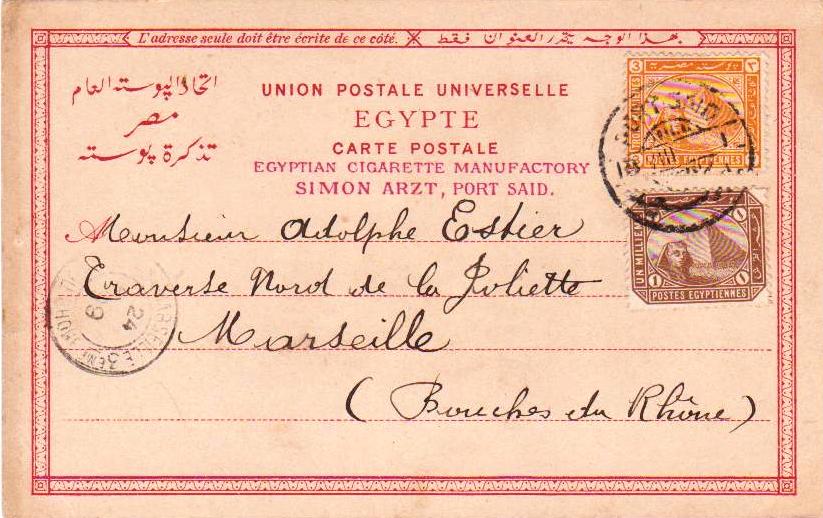 L'adresse seule doit être écrite de ce côté. هذا الوجه يتحرر العنوان فقط
اتحاد البوسته العام
مصر
تذكرة بوسته
UNION POSTALE UNIVERSELLE
EGYPTE
CARTE POSTALE
EGYPTIAN CIGARETTE MANUFACTORY
SIMON ARZT, PORT SAID.
3
بوسته مصرية
٣
POSTES EGYPTIENNES
PORT SAID
1
UN MILLIEME
1
POSTES EGYPTIENNES
Monsieur Adolphe Estier
Traverse Nord de la Joliette
Marseille
(Bouches du Rhône)
MARSEILLE
24